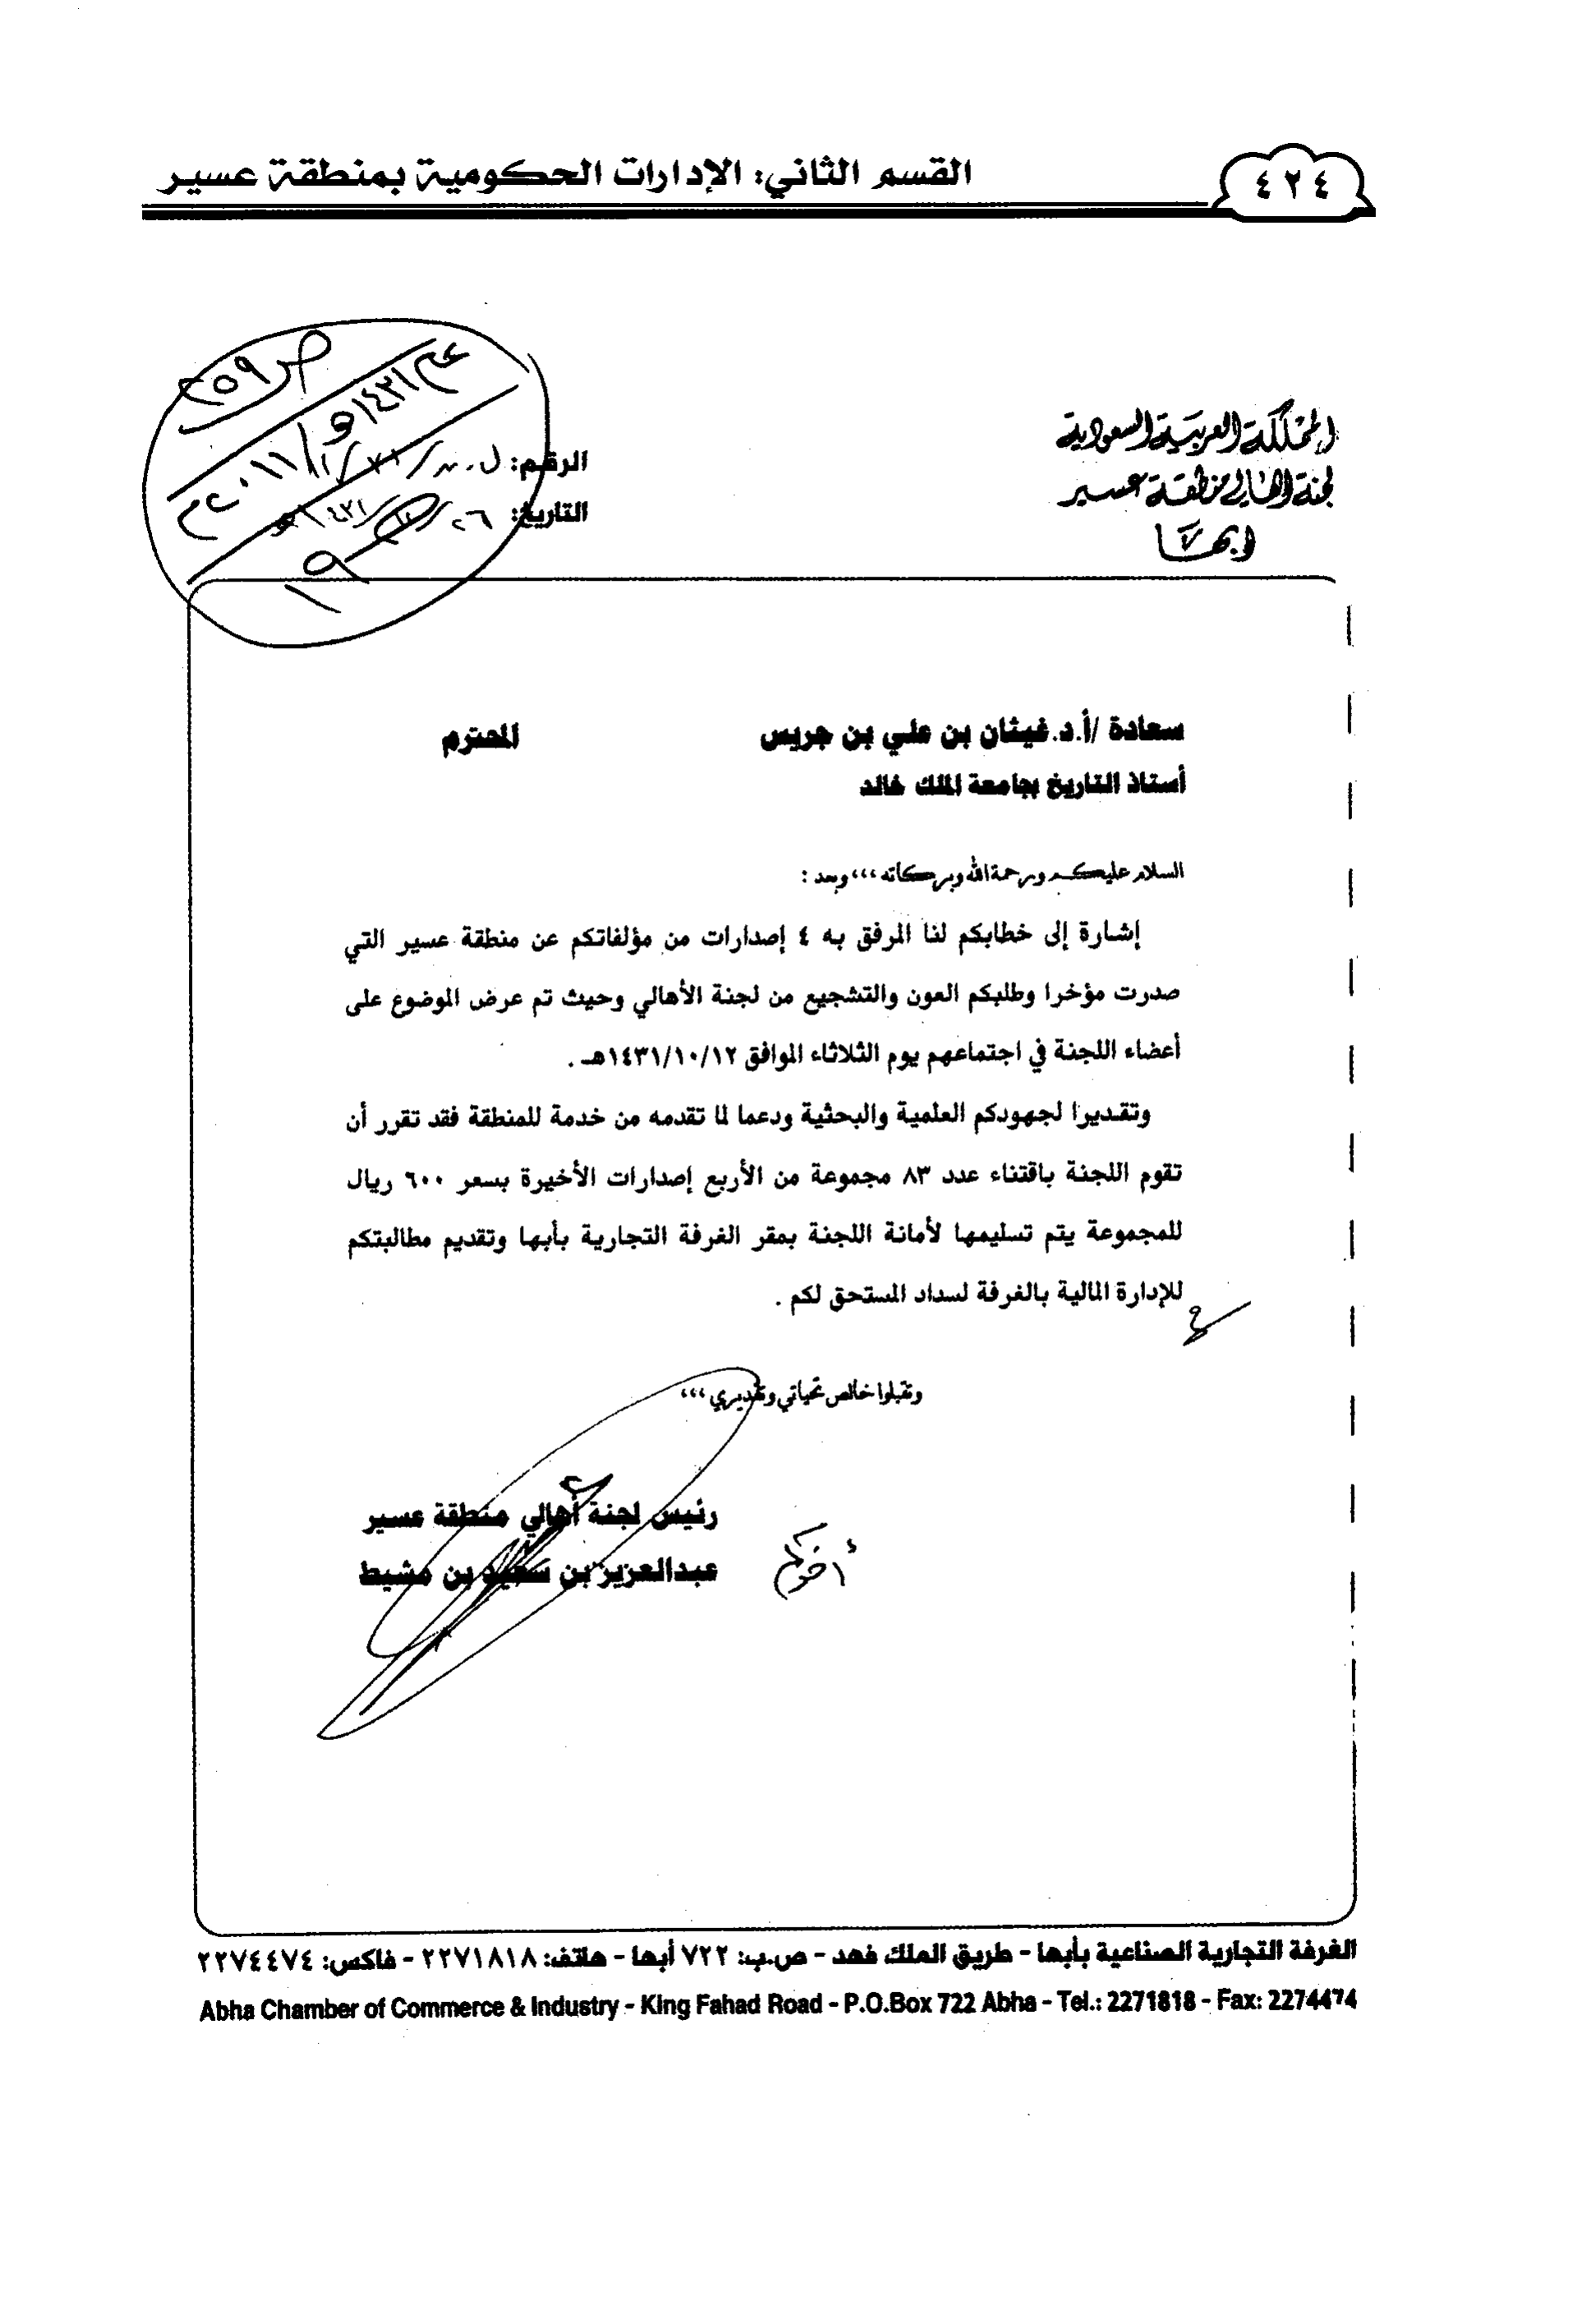 ٤٢٤
القسم الثاني: الإدارات الحكومية بمنطقة عسير
المملكة العربية السعودية
لجنة اهالي منطقة عسير
ابها
ص ٢٥٩
الرقم:
التاريخ: ٢٦
سعادة /أ.د. غيثان بن علي بن جريس المحترم
أستاذ التاريخ بجامعة الملك خالد
السلام عليكم ورحمة الله وبركاته ،،، وبعد :
إشارة إلى خطابكم لنا المرفق به ٤ إصدارات من مؤلفاتكم عن منطقة عسير التي
صدرت مؤخرا وطلبكم العون والتشجيع من لجنة الأهالي وحيث تم عرض الموضوع على
أعضاء اللجنة في اجتماعهم يوم الثلاثاء الموافق ١٤٣١/١٠/١٢هـ .
وتقديرا لجهودكم العلمية والبحثية ودعما لما تقدمه من خدمة للمنطقة فقد تقرر أن
تقوم اللجنة باقتناء عدد ٨٣ مجموعة من الأربع إصدارات الأخيرة بسعر ٦٠٠ ريال
للمجموعة يتم تسليمها لأمانة اللجنة بمقر الغرفة التجارية بأبها وتقديم مطالبتكم
للإدارة المالية بالغرفة لسداد المستحق لكم .
وتقبلوا خالص تحياتي وتقديري ،،،
رئيس لجنة أهالي منطقة عسير
أخوكم عبدالعزيز بن سعيد بن مشيط
الغرفة التجارية الصناعية بأبها - طريق الملك فهد - ص.ب: ٧٢٢ أبها - هاتف: ٢٢٧١٨١٨ - فاكس: ٢٢٧٤٤٧٤
Abha Chamber of Commerce & Industry - King Fahad Road - P.O.Box 722 Abha - Tel.: 2271818 - Fax: 2274474